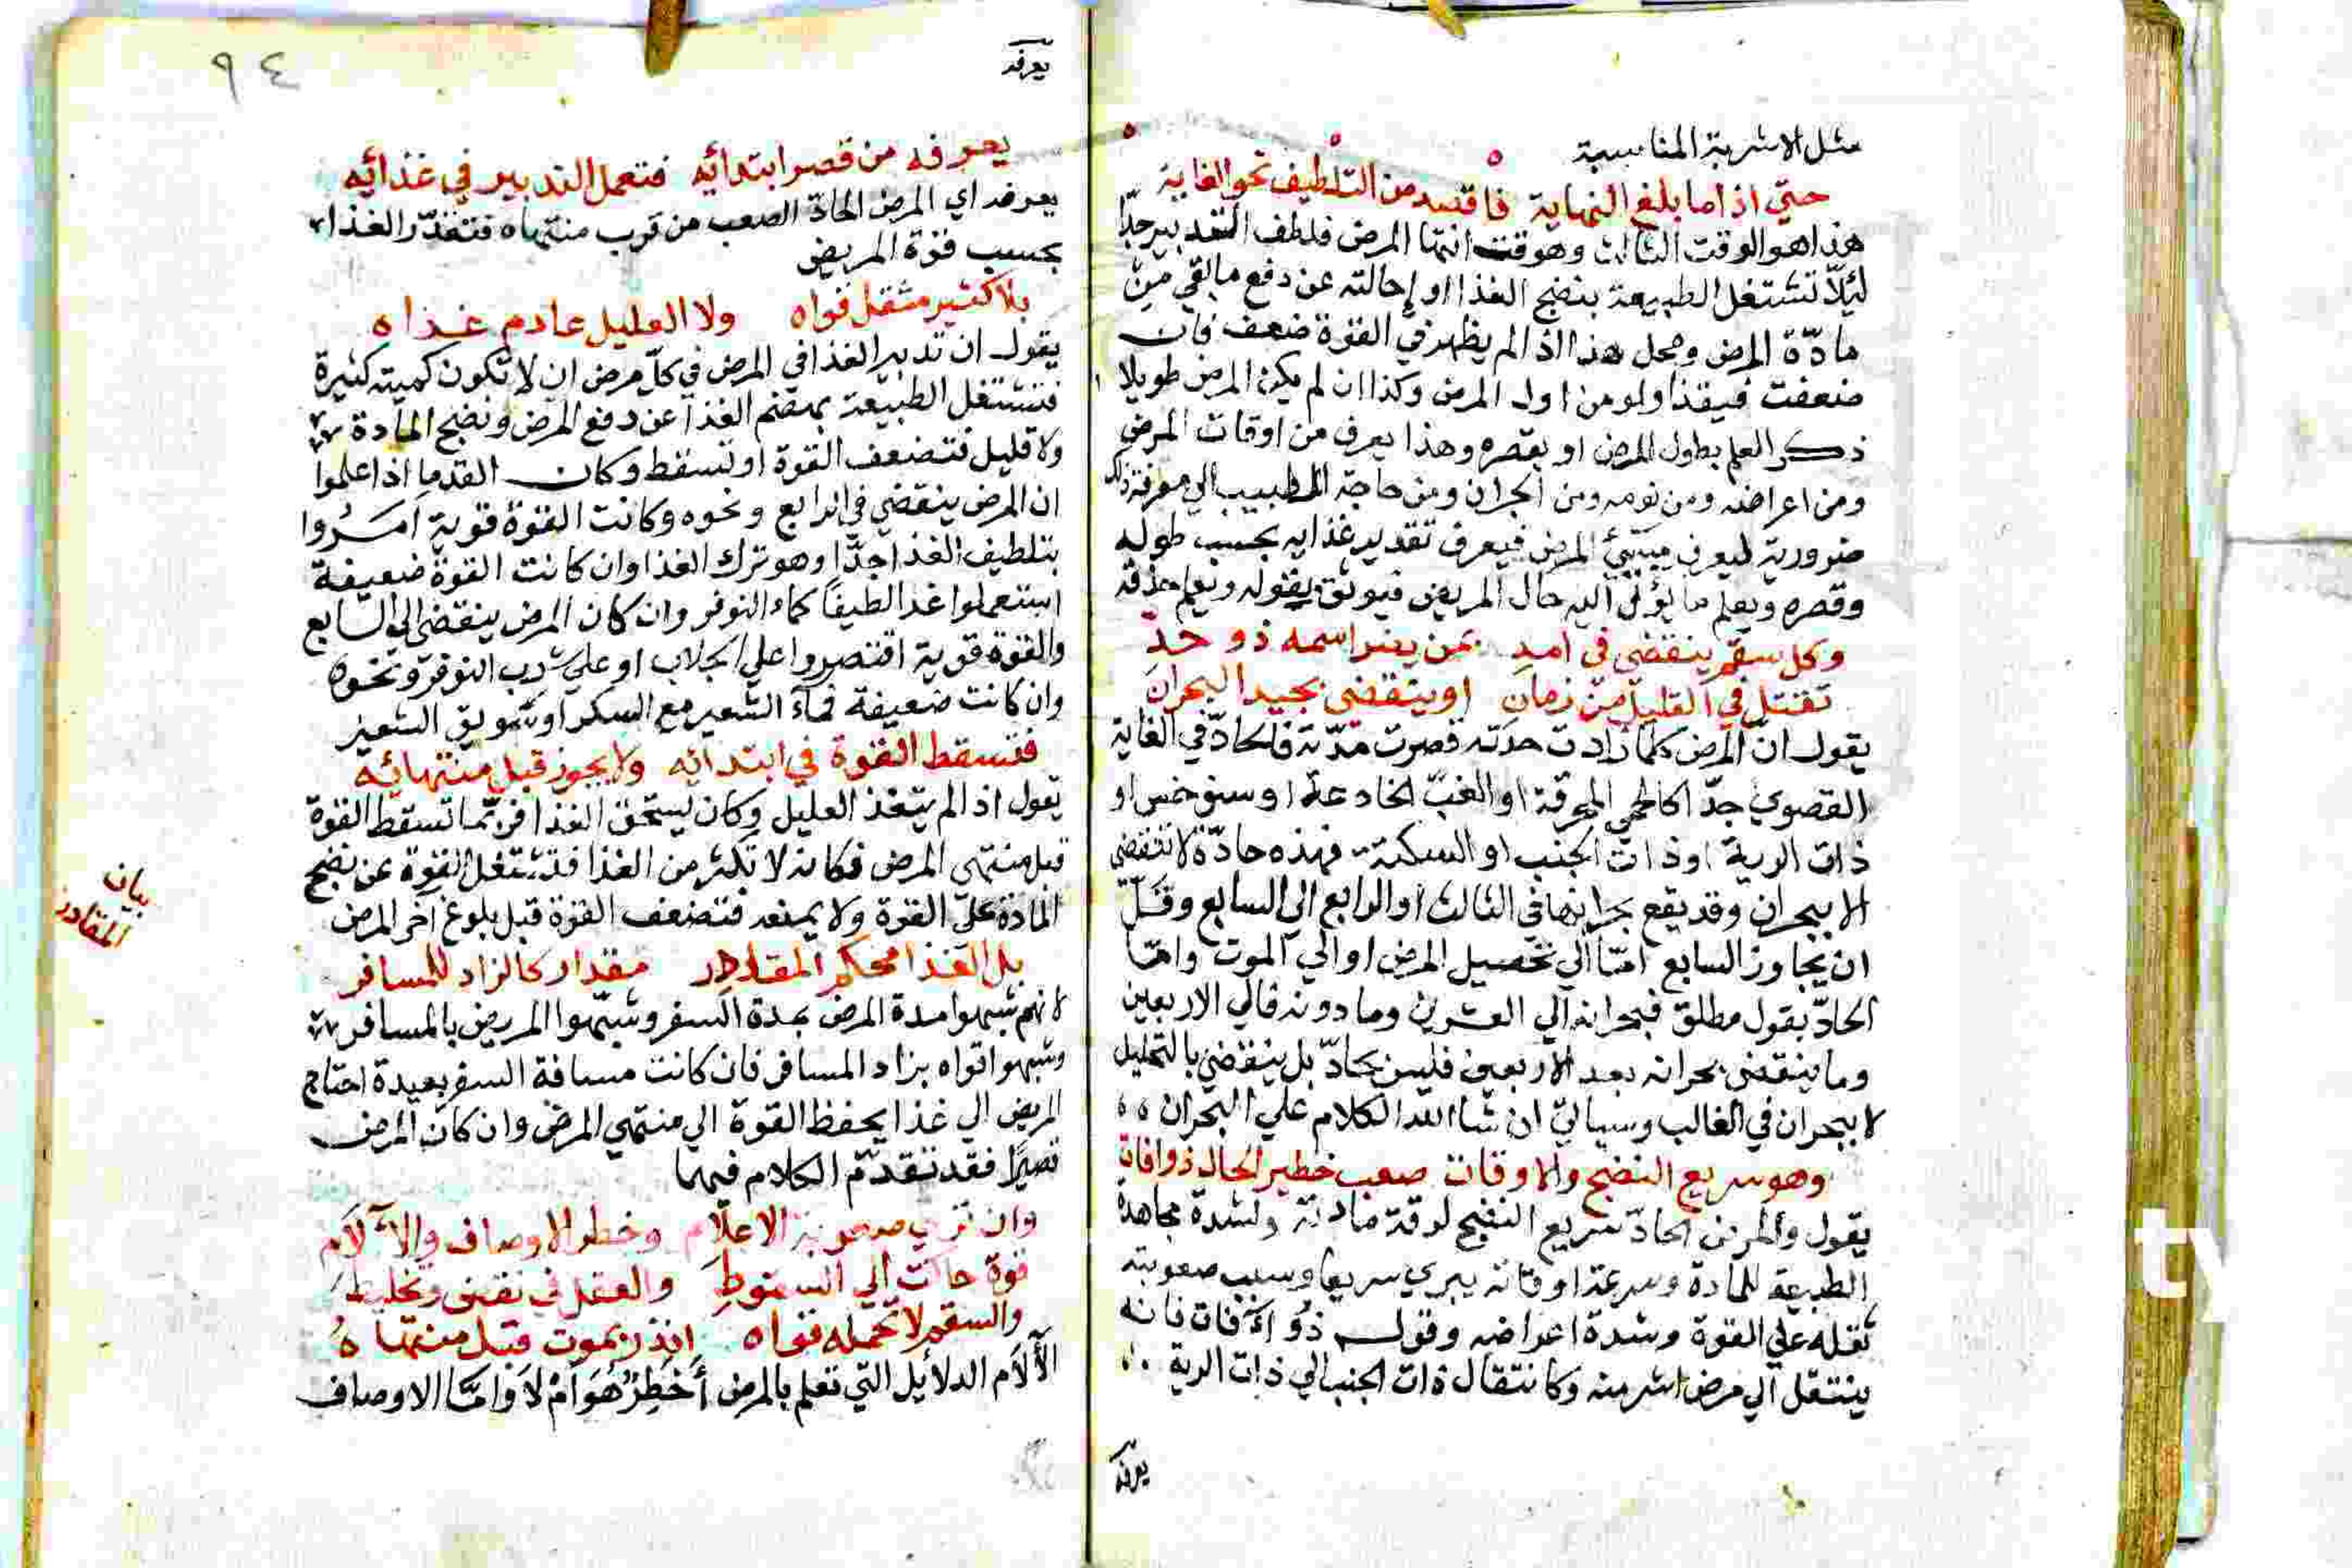 مثل الاشربة المناسبة
حتي اذا ما بلغ النهاية فاقصد من التلطيف نحو الغاية
هذا هو الوقت الثالث وهو وقت انتها المرض فلطف التدبير جدّا
ليلّا تشتغل الطبيعة بنضج الغذا او إحالته عن دفع ما بقي من
مادّة المرض ومحل هذا اذا لم يظهر في القوة ضعف فان
ضعفت فيغذا ولو من اول المرض وكذا ان لم يكن المرض طويلا
ذكر العلم بطول المرض او بقصره وهذا يعرف من اوقات المرض
ومن اعراضه ومن نومه ومن البحران ومن حاجة الطبيب الي معرفة ذلك
ضرورية ليعرف المرض فيعرف تقدير غذايه بحسب طوله
وقصره ويعلم ما يؤل اليه حال المريض فيوثق بقوله ويعلم حذقه
وكل سقم ينقضي في امد بمن يعتر اسمه ذو حدّ
تقتل في القليل من زمان او ينقضي بجيد البحران
يقول ان المرض كلما زادت حدته قصرت مدّته فالحادّ في الغاية
القصوي جدّا كالحمي المحرقة او الغبّ او سنوخس او
ذات الرية او ذات الجنب او السكتة فهذه حادّة لا تنقضي
الا ببحران وقد يقع بحرانها في الثالث او الرابع الي السابع وقلّ
ان يجاوز السابع امّا الي المرض او الي الموت وامّا
الحادّ بقول مطلق فبحرانه الي العشرين وما دونه فالي الاربعين
وما ينقضي بحرانه بعد الاربعين فليس بحادّ بل ينقضي بالتحليل
لا ببحران في الغالب وسياتي ان شا الله الكلام علي البحران
وهو سريع النضج والاوقات صعب خطير الحال ذو افات
يقول والمرض الحادّ سريع النضج لرقة مادته ولشدة مجاهدة
الطبيعة للمادة وسرعة اوقاته يبري سريعا وسبب صعوبته
ثقله علي القوة وشدة اعراضه وقوله ذو افات فانه
ينتقل الي مرض اشر منه وكانتقال ذات الجنب الي ذات الرية
يعرفه
٩٤
يعرفه
يعرفه من قصر ابتدائه فتعمل التدبير في غذائه
يعرفه اي المرض الحادّ الصعب من قرب منتهاه فتقدّر الغذا
بحسب قوة المريض
بلا كثير مثقل قواه ولا العليل عادم غذاه
يقول ان تدبير الغذا في المرض في كلّ مرض ان لا تكون كميته كثيرة
فتشتغل الطبيعة بهضم الغذا عن دفع المرض ونضج المادة
ولا قليل فتضعف القوة او تسقط وكان القدما اذا علموا
ان المرض ينقضي في الرابع ونحوه وكانت القوة قوية امَرُوا
بتلطيف الغذا جدّا وهو ترك الغذا وان كانت القوة ضعيفة
استعملوا غذا لطيفاً كماء النوفر وان كان المرض ينقضي الي السابع
والقوة قوية اقتصروا علي الجلاب او علي شرب النوفر ونحوه
وان كانت ضعيفة فماء الشعير مع السكر او سويق الشعير
فتسقط القوة في ابتدائه ولا يجوز قبل منتهائه
يقول اذا لم يتغذ العليل وكان يستحق الغذا فربّما تسقط القوة
قبل منتهي المرض فكانه لا تكثر من الغذا فتشتغل القوة عن نضج
المادة علي القوة ولا يمنعه فتضعف القوة قبل بلوغ آخر المرض
بيان
المقادير
بل الغذا محكم المقدار مقدار كالزاد للمسافر
لانهم شبهوا مدة المرض بمدة السفر وشبّهوا المريض بالمسافر
وشبهوا قواه بزاد المسافر فان كانت مسافة السفر بعيدة احتاج
المريض الي غذا يحفظ القوة الي منتهي المرض وان كان المرض
قصيرًا فقد تقدّم الكلام فيها
وان تري صعوبة الاعلام وخطر الاوصاف والآلام
قوة حالت الي السقوط والعقل في نقص وتخليط
والسقم لا تحمله قواه انذر بموت قبل منتهاه
الآلام الدلائل التي تعلم بالمرض أخَطِرٌ هُوَ امْ لاَ وامّا الاوصاف